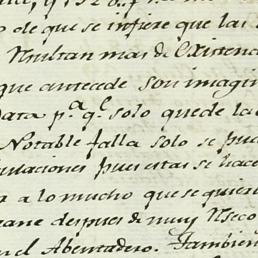 o de que se infiere que las
Resultan mas de Existenc
que antecede son imagin
para p.a q.e solo quede la
Notable falla solo se pue
rvaciones puestas se hace
r a lo mucho que se quier
rane despues de muy Reseco
en el Abentadero. Tambien